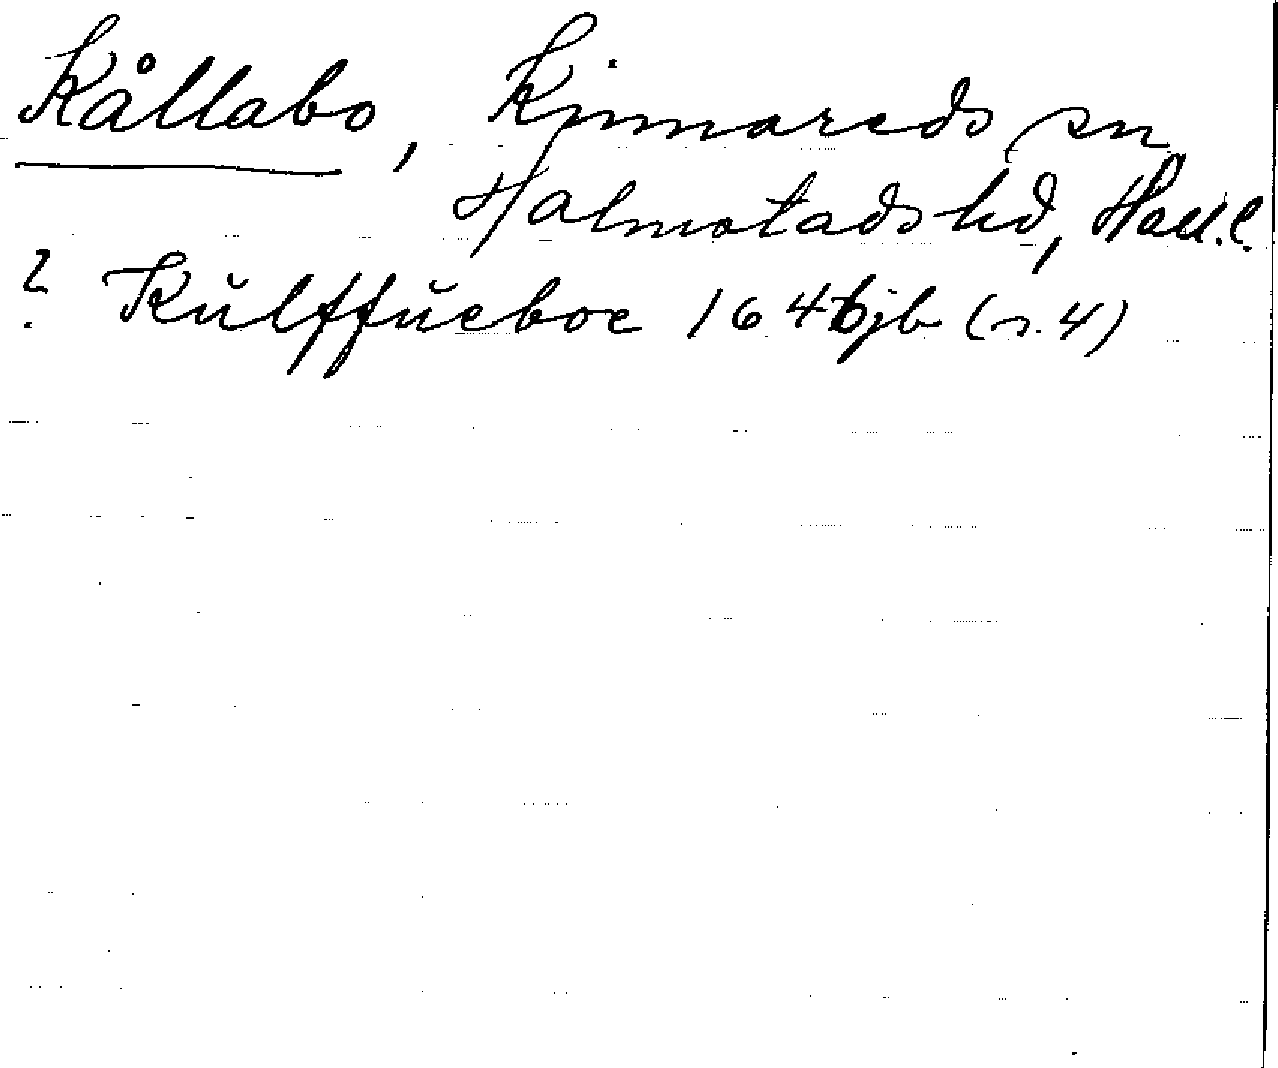 Kållabo, Kinnareds sn
Halmstads hd, Hall. l.
? Kŭlffŭeboe 1646 jb (s. 4)